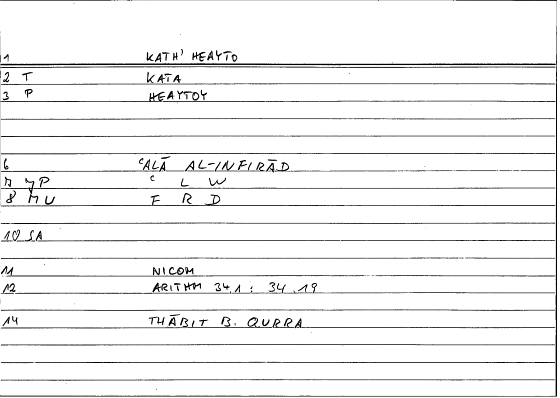 1 KATH' HEAYTO
2 T KATA
3 P HEAYTOY
6 ʿALĀ AL-INFIRĀD
7 YP ʿ L W
8 MU F R D
10 SA
11 NICOM
12 ARITHM 34,1 : 34,19
14 THĀBIT B. QURRA